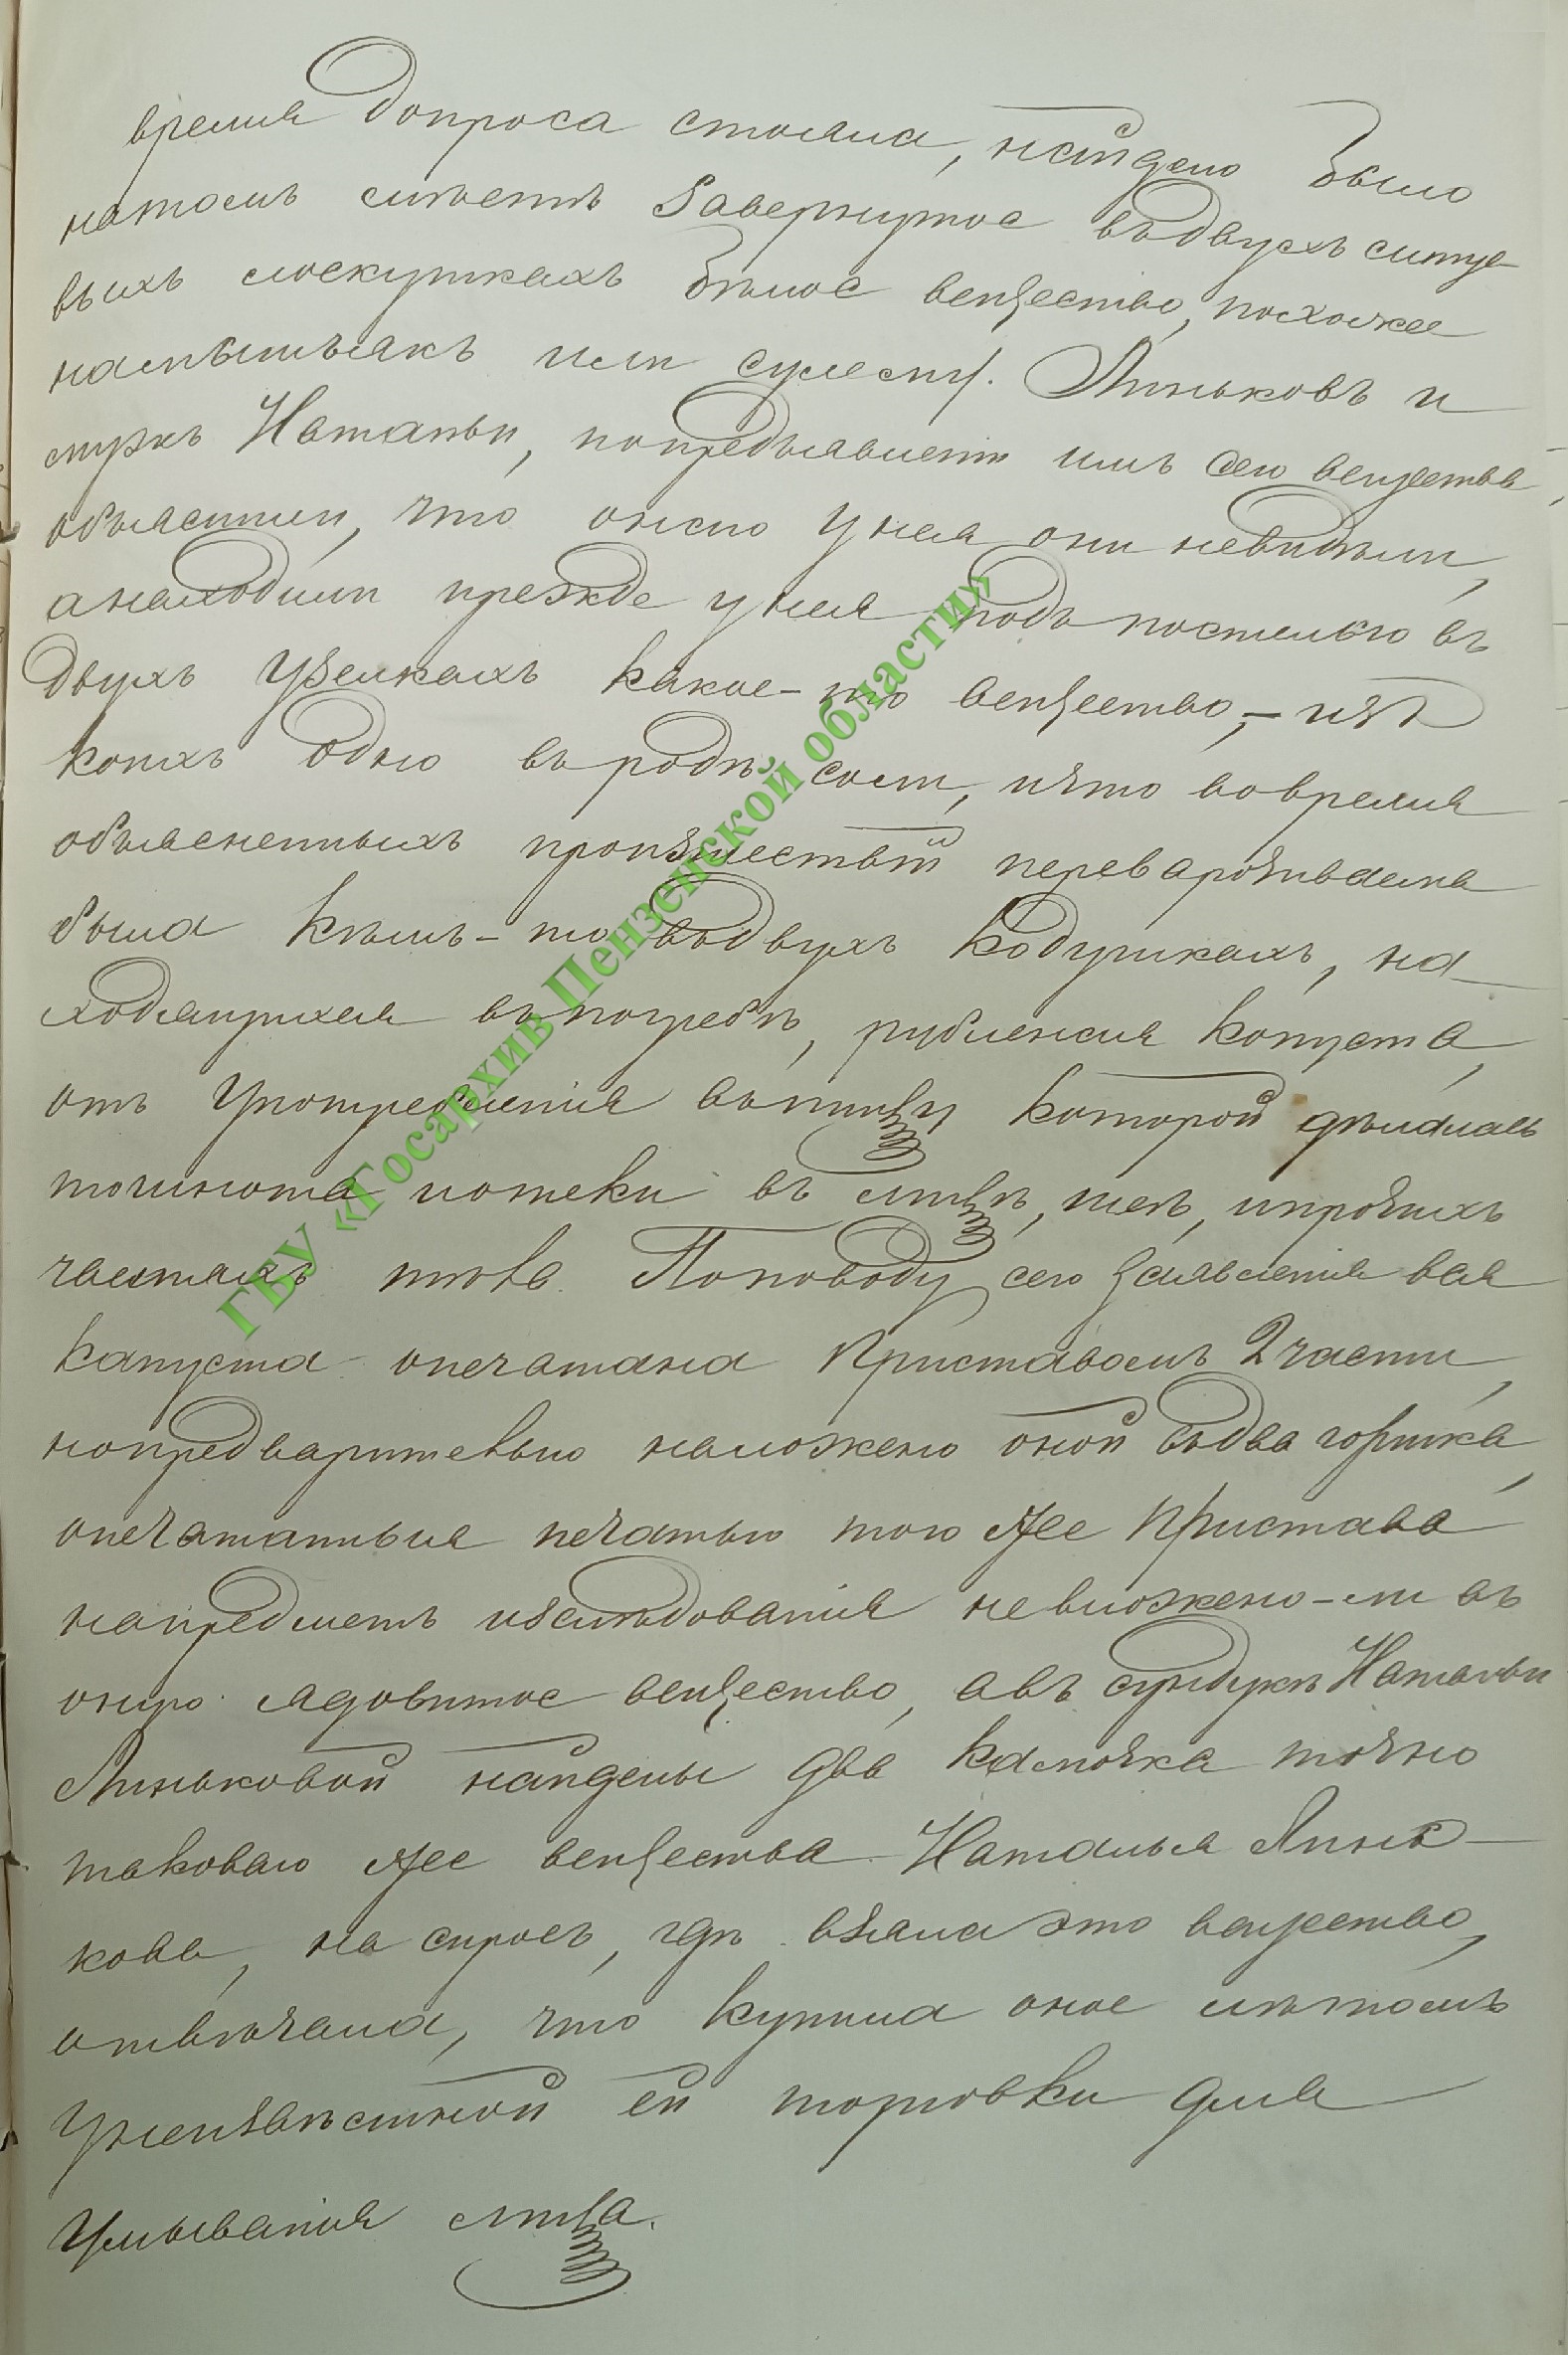 время допроса стояла, найдено было
натомъ слѣетѣ завернутое въ двухъ ситце
выхъ лоскуткахъ бѣлое вещество, похожее
намышьякъ или сулему. Линьковъ и
мужъ Натальи, попредъявленіи имъ сего вещества,
объяснили, что онаго у нея они невидѣли,
анаходили прежде у нея подъ постелью въ
двухъ узелкахъ какое-то вещество, – изъ
коихъ одно въ родѣ соли, ичто вовремя
объясненныхъ произшествій переварочиваема
была кѣмъ-то въ двухъ кодушкахъ, на
ходящихся въ погребѣ, рубленная копуста,
отъ употребленія въпищу которой дѣлалась
тошнота иотеки въ лицѣ, шеѣ, ипрочихъ
частяхъ тѣла. Поповоду сего заявленія вся
капуста опечатана Приставомъ 2 части,
нопредварительно наложено оной въ два горшка,
опечатанные печатью того же Пристава
напредметъ изслѣдованія невложено-ли въ
оную ядовитое вещество, авъ сундукѣ Натальи
Линьковой найдены два камочка точно
таковаго же вещества. Наталья Линь-
кова, на спросъ, гдѣ взяла это вещество,
отвѣчала, что купила оное лѣтомъ
Унеизвѣстной ей торговки для
Умыванія лица.
ГБУ «Госархив Пензенской области»